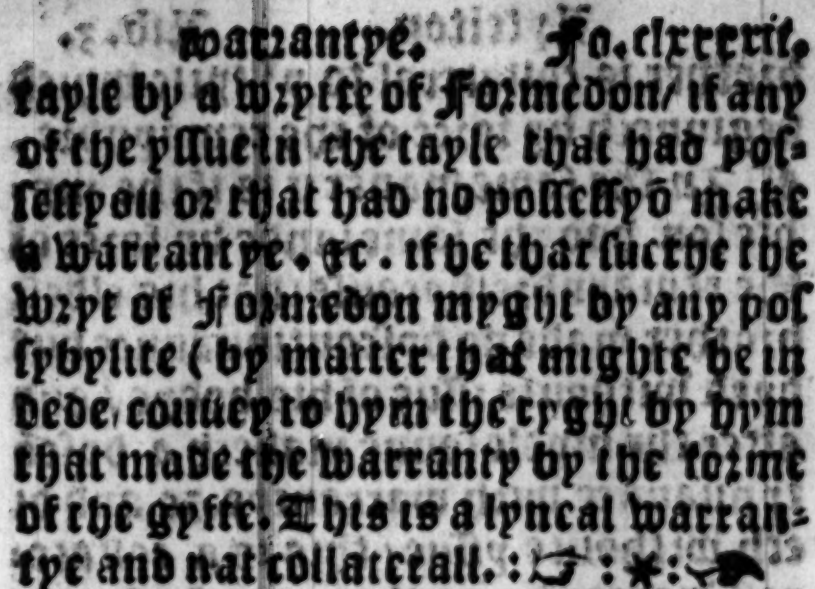 warrantye. Fo.clxxxxii.
tayle by a wrytte of Formedon/ if any
of the yſſue in the tayle that had poſ⸗
ſeſſyon or that had no poſſeſſyō make
a warrantye . &c . if he that ſuethe the
wryt of Formedon myght by any poſ
ſybylite ( by matter that mighte be in
dede, conuey to hym the ryght by hym
that made the warranty by the forme
of the gyfte. This is a lyneal warran⸗
tye and nat collaterall. : ☞ : * : ❧